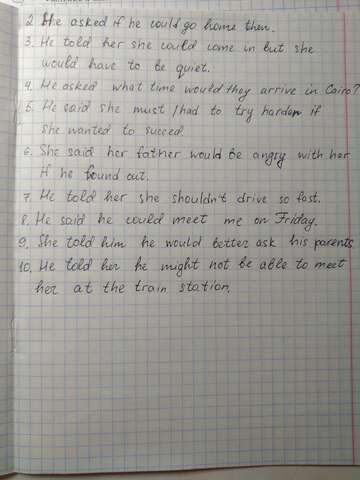 2. She asked if he could go home then.
3. He told her she could come in but she
would have to be quiet.
4. He asked what time would they arrive in Cairo?
5. He said she must / had to try harder if
she wanted to succed.
6. She said her father would be angry with her
if he found out.
7. He told her she shouldn't drive so fast.
8. He said he could meet me on Friday.
9. She told him he would better ask his parents.
10. He told her he might not be able to meet
her at the train station.